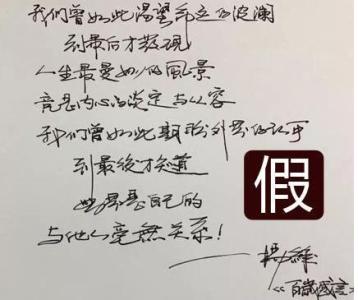 我们曾如此渴望命运的波澜
到最后才发现
人生最曼妙的風景
竟是内心的淡定与从容
我们曾如此期盼外界的认可
到最後才知道
世界是自己的
与他人毫無关系！
——楊絳
《百歲感言》
假